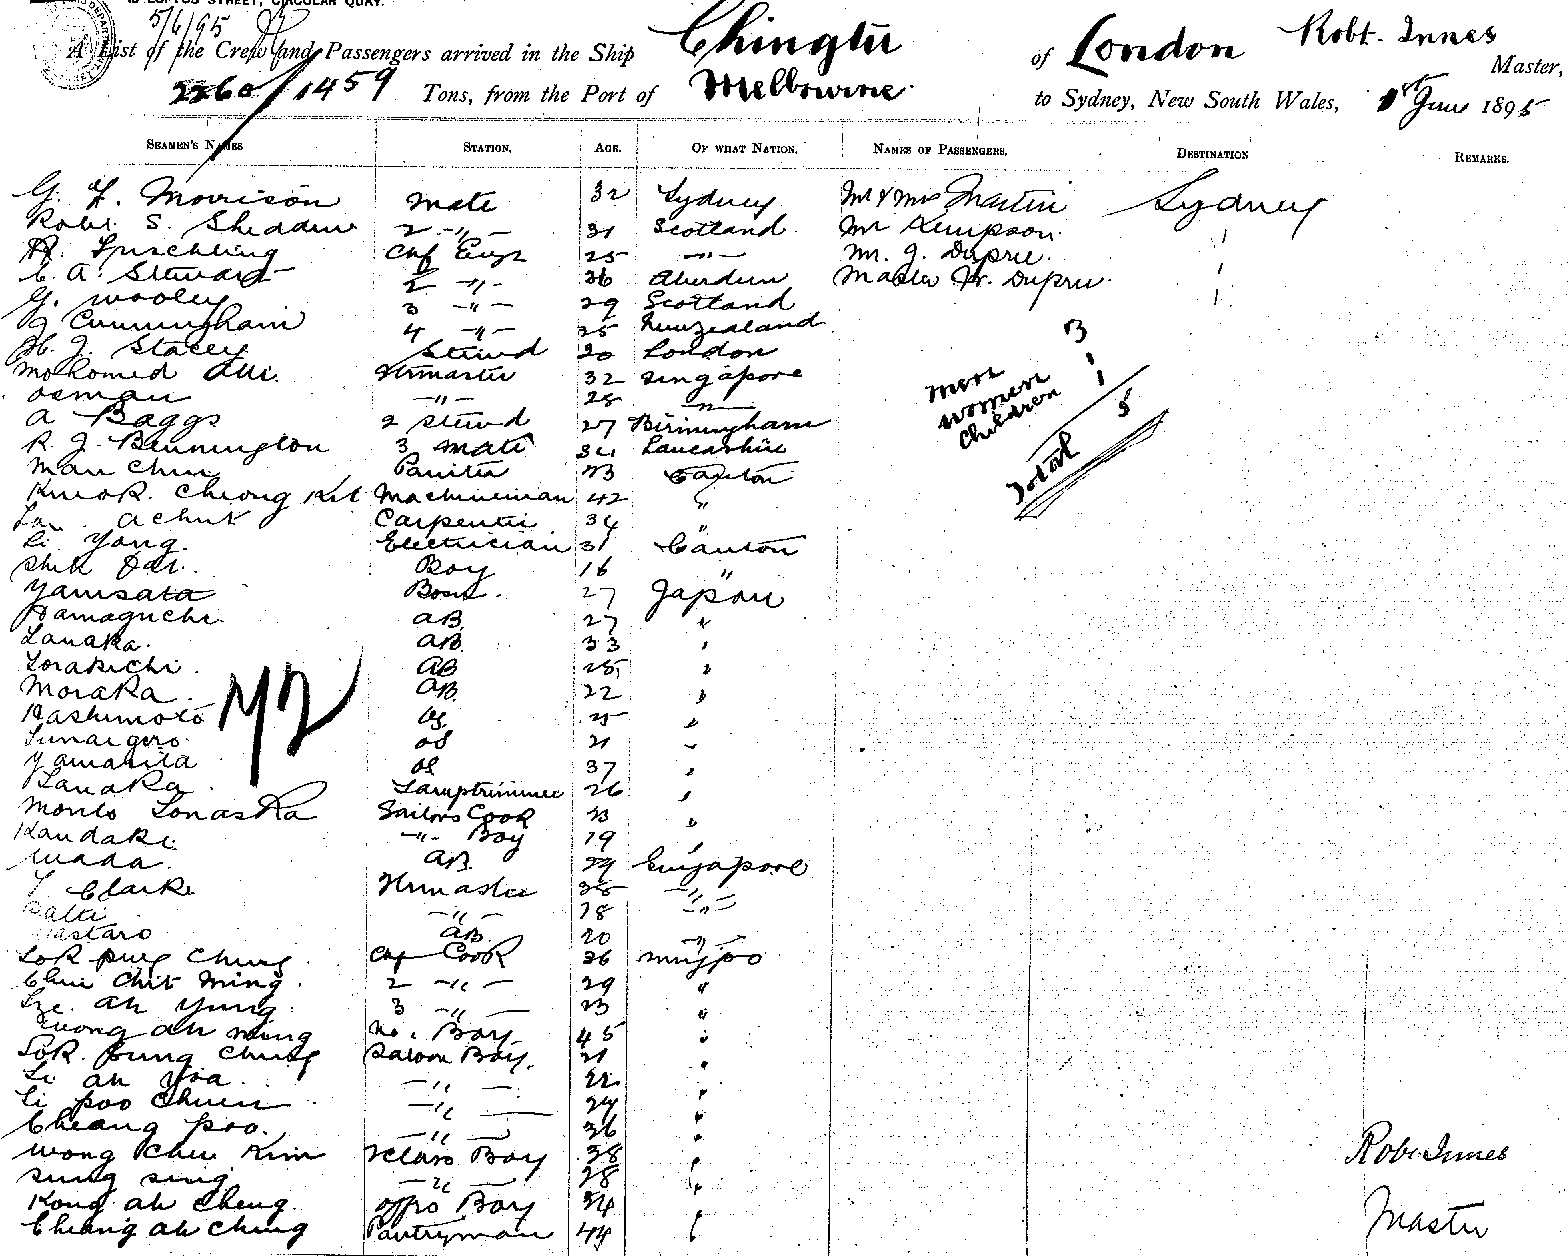 LOFTUS STREET, CIRCULAR QUAY.
5/6/95
A List of the Crew and Passengers arrived in the Ship Chingtu of London Robt. Innes Master,
2260/1459 Tons, from the Port of Melbourne to Sydney, New South Wales, 1st June 1895
SEAMEN'S NAMES STATION. AGE. OF WHAT NATION. NAMES OF PASSENGERS. DESTINATION REMARKS.
G. F. Morrison Mate 32 Sydney Mr & Mrs Martin Sydney
Robt. S. Shedden 2 -"- 31 Scotland Mr Kempson
Chf Engr 25 -"- Mr. J. Dupree.
C. A. Steward 2 -"- 36 Aberdeen Master W. Dupree.
G. Wooley 3 -"- 29 Scotland
J Cunningham 4 -"- 25 Newzealand
H. J. Stacey Steward 20 London
Mohomed 32 Singapore
Osman -"- 28 -"-
A Baggs 2 Steward 27 Birmingham
R. J. Bennington 3 Mate 34 Lancashire
Man Chun Painter 23 Canton
Kwok Cheong Kit Machineman 42 "
Achuk Carpenter 34 "
Li Yong. Electrician 31 Canton
Boy 16 "
Yamsata Bosn. 27 Japan
Hamaguchi AB. 27 "
Tanaka. AB. 33 "
Torakichi AB 25 "
Moraka AB. 22 "
Hashimoto OS "
OS 21 "
Yamanita OS 37 "
Tanaka Lamptrimmer 26 "
Sailors Cook 23 "
Kandaki -"- Boy 19 "
Wada AB. 29 Singapore
Clarke -"-
-"- 18 -"-
AB. 20 -"-
Cook 36 Ningpo
Chit Ming. 2 -"- 29 "
Ah Yung. 3 -"- 23 "
Ah No. 1 Boy. 45 "
Saloon Boy. 21 "
Li Ah -"- 22 "
Li Poo Chuen -"- 24 "
Cheang Poo. -"- 36 "
Wong Chee Kim Boy 38 "
Sung Sing -"- 28 "
Kong Ah Cheng Boy 34 "
Cheang Ah Ching Pantryman 44 "
Men 3
Women 1
Children 1
Total 5
42
Robt Innes
Master